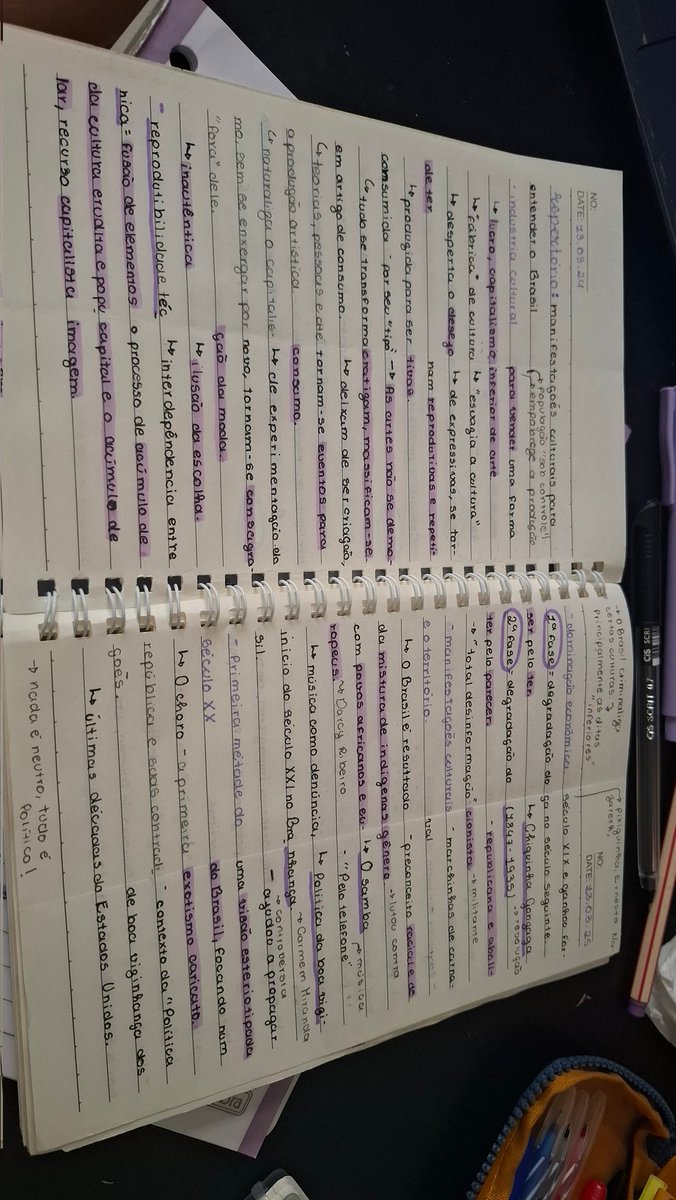 NO:
DATE: 13.03.24
repertório: manifestações culturais para
entender o Brasil
↳ população "sob controle"
↳ empobrece a produção
- industria cultural para vender uma forma
↳ lucro, capitalismo inferior de arte
↳ "fábrica" de cultura ↳ "esvazia a cultura"
↳ desperta o desejo ↳ de expressivas, se tor-
de ter nam reprodutivas e repeti-
↳ produzida para ser tivas.
consumida - por seu "tipo" → As artes não se demo-
↳ tudo se transforma cratizam, massificam-se.
em artigo de consumo. ↳ deixam de ser criação,
↳ teorias, pessoas e até tornam-se eventos para
a produção artística consumo.
↳ naturaliza o capitalis- ↳ de experimentação do
mo, sem se enxergar por novo, tornam-se consagra-
"fora" dele. ção da moda.
↳ inautêntica ↳ ilusão da escolha.
- reprodutibilidade téc ↳ interdependência entre
nica: fusão de elementos o processo de acúmulo de
da cultura erudita e popu capital e o acúmulo de
lar, recurso capitalista imagem.
→ O Brasil criminaliza
certas culturas
Principalmente as ditas
"inferiores"
Pixiguinha, Ernesto Na
zareth
NO:
DATE: 13.03.25
- dominação econômica: século XIX e ganhou for-
1ª fase = degradação do ça no século seguinte.
ser pelo ter ↳ Chiquinha Gonzaga
2ª fase = degradação do (1847-1935) → revolução
ter pelo parecer - republicana e aboli-
→ "total desinformação" cionista → militante
- manifestações culturais - marchinhas de carna-
e o território. val
↳ O Brasil é resultado - preconceito racial e de
da mistura de indígenas gênero → lutou contra
com povos africanos e eu- ↳ O samba → música
ropeus. → Darcy Ribeiro - "Pelo telefone"
↳ música como denúncia, ↳ Política da boa vigi-
início do século XXI no Bra nhança → Carmem Miranda
sil. → controvérsia
→ ajudou a propagar
- Primeira metade do uma visão esteriotipada
século XX do Brasil, focando num
↳ O choro - a primeira exotismo caricato.
república e suas contradi - contexto da "Política
ções. de boa viginhança dos
↳ últimas décadas do Estados Unidos.
→ nada é neutro, tudo é
Político!